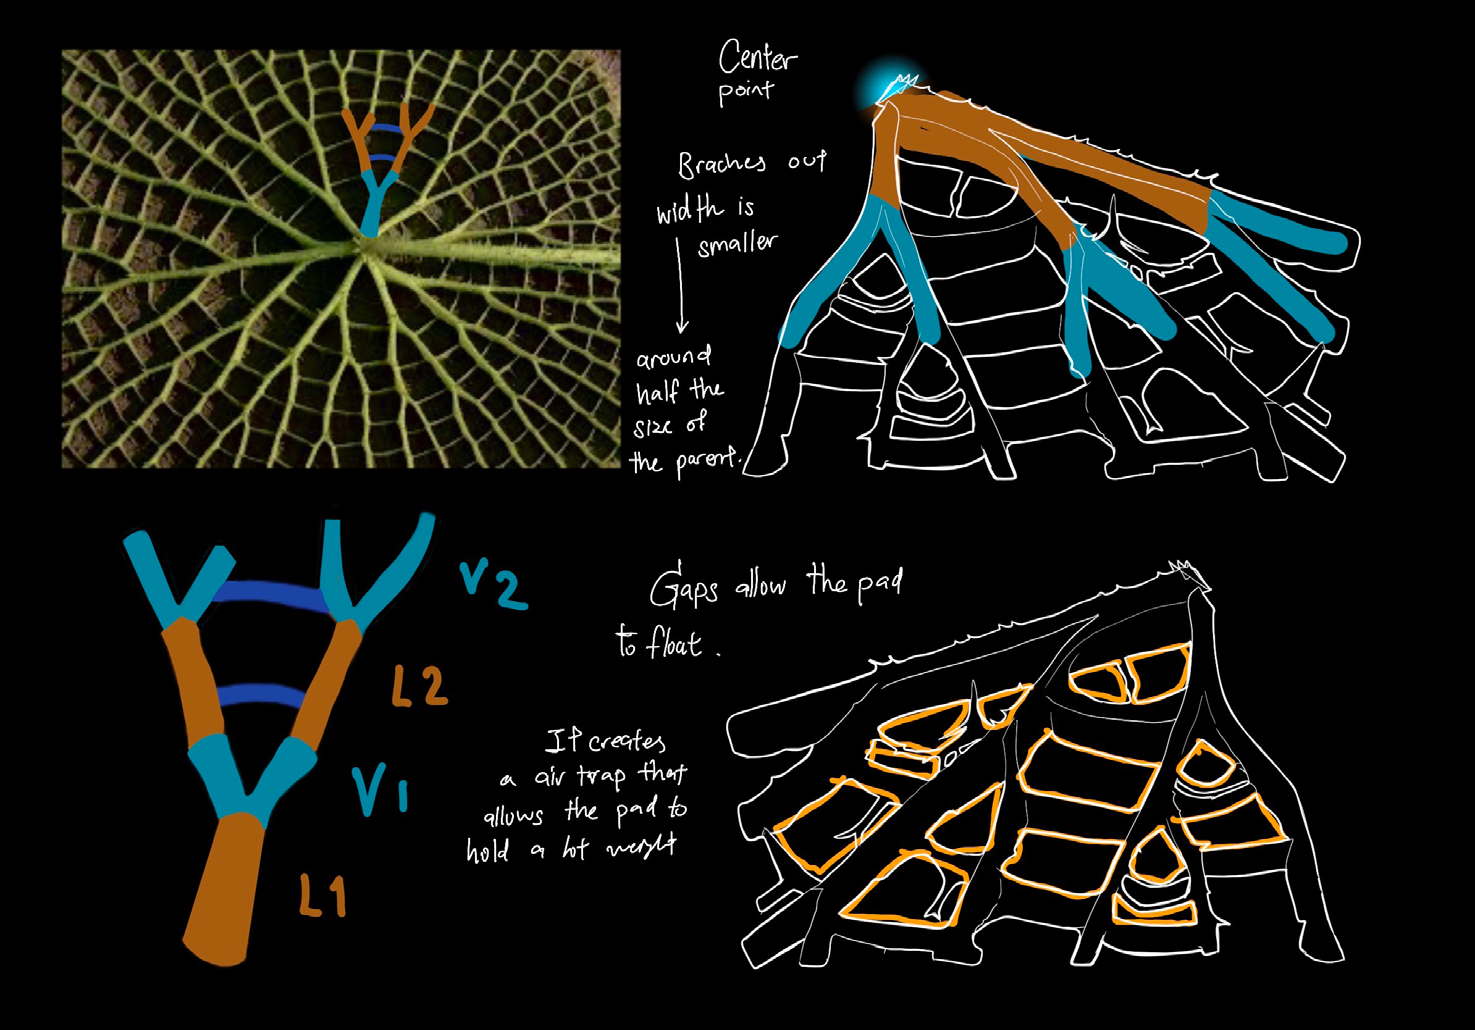 Center
point
Braches out
width is
smaller
around
half the
size of
the parent.
V2
L2
V1
L1
Gaps allow the pad
to float.
It creates
a air trap that
allows the pad to
hold a lot weight